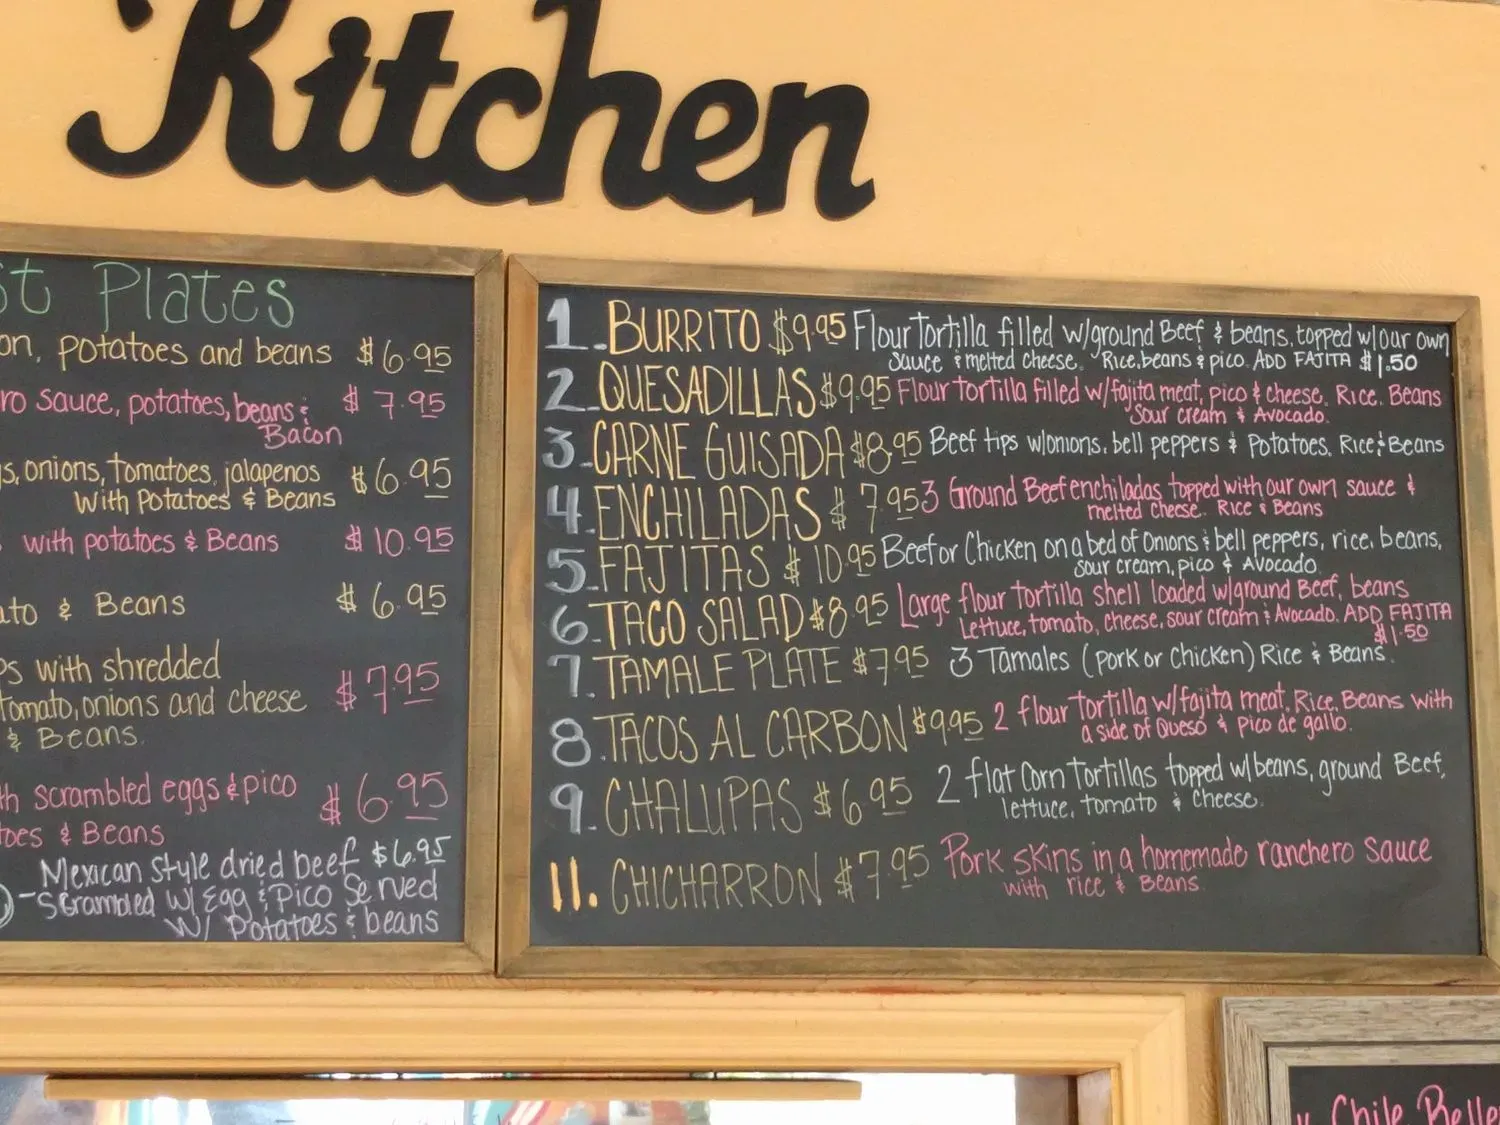 Kitchen
Plates
potatoes and beans $6.95
sauce, potatoes, beans & $7.95
Bacon
onions, tomatoes, jalapenos $6.95
with Potatoes & Beans
with potatoes & Beans $10.95
& Beans $6.95
with shredded
tomato, onions and cheese $7.95
& Beans.
scrambled eggs & pico $6.95
& Beans
Mexican Style dried beef $6.95
- Scrambled W/ Egg & Pico Served
W/ Potatoes & beans
1. BURRITO $9.95 Flour Tortilla filled w/ground Beef & beans, topped w/our own
sauce & melted cheese. Rice, beans & pico. ADD FAJITA $1.50
2. QUESADILLAS $9.95 Flour tortilla filled w/fajita meat, pico & cheese. Rice. Beans
Sour cream & Avocado.
3. CARNE GUISADA $8.95 Beef tips w/onions, bell peppers & Potatoes. Rice & Beans
4. ENCHILADAS $7.95 3 Ground Beef enchiladas topped with our own sauce &
melted cheese. Rice & Beans
5. FAJITAS $10.95 Beef or Chicken on a bed of Onions & bell peppers, rice, beans,
sour cream, pico & Avocado
6. TACO SALAD $8.95 Large flour tortilla shell loaded w/ground Beef, beans
Lettuce, tomato, cheese, sour cream & Avocado. ADD FAJITA
$1.50
7. TAMALE PLATE $7.95 3 Tamales (pork or Chicken) Rice & Beans.
8. TACOS AL CARBON $9.95 2 flour Tortilla w/fajita meat. Rice, Beans with
a side of Queso & Pico de gallo.
9. CHALUPAS $6.95 2 flat Corn Tortillas topped w/beans, ground Beef,
lettuce, tomato & cheese.
11. CHICHARRON $7.95 Pork skins in a homemade ranchero sauce
with rice & Beans
Chile